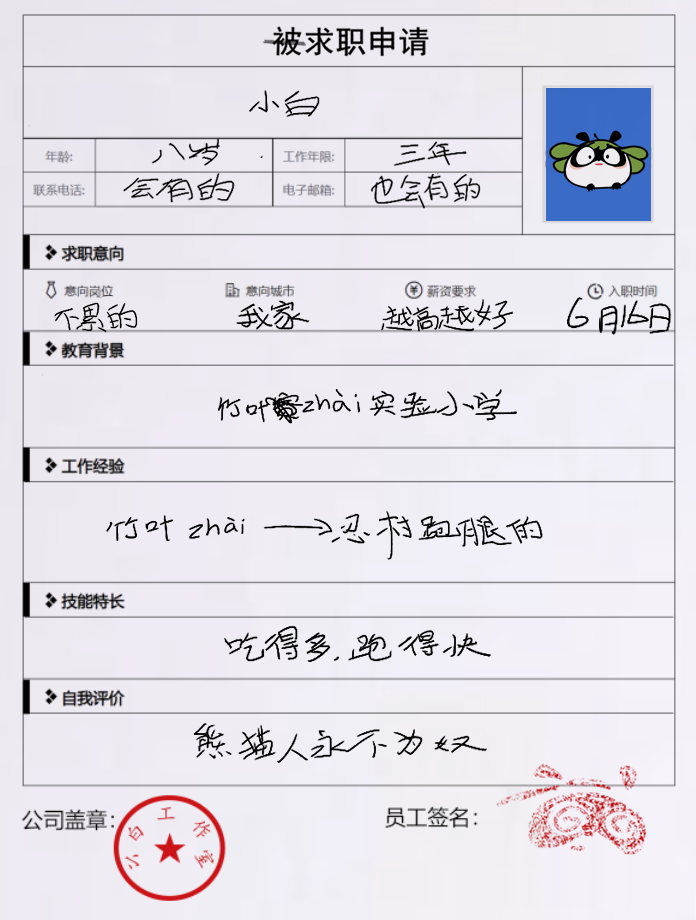 被求职申请
小白
年龄: 八岁 工作年限: 三年
联系电话: 会有的 电子邮箱: 也会有的
求职意向
意向岗位 意向城市 薪资要求 入职时间
不累的 我家 越高越好 6月16日
教育背景
竹叶zhài实验小学
工作经验
竹叶 zhài → 忍村跑腿的
技能特长
吃得多,跑得快
自我评价
熊猫人永不为奴
公司盖章: 员工签名:
小白工作室